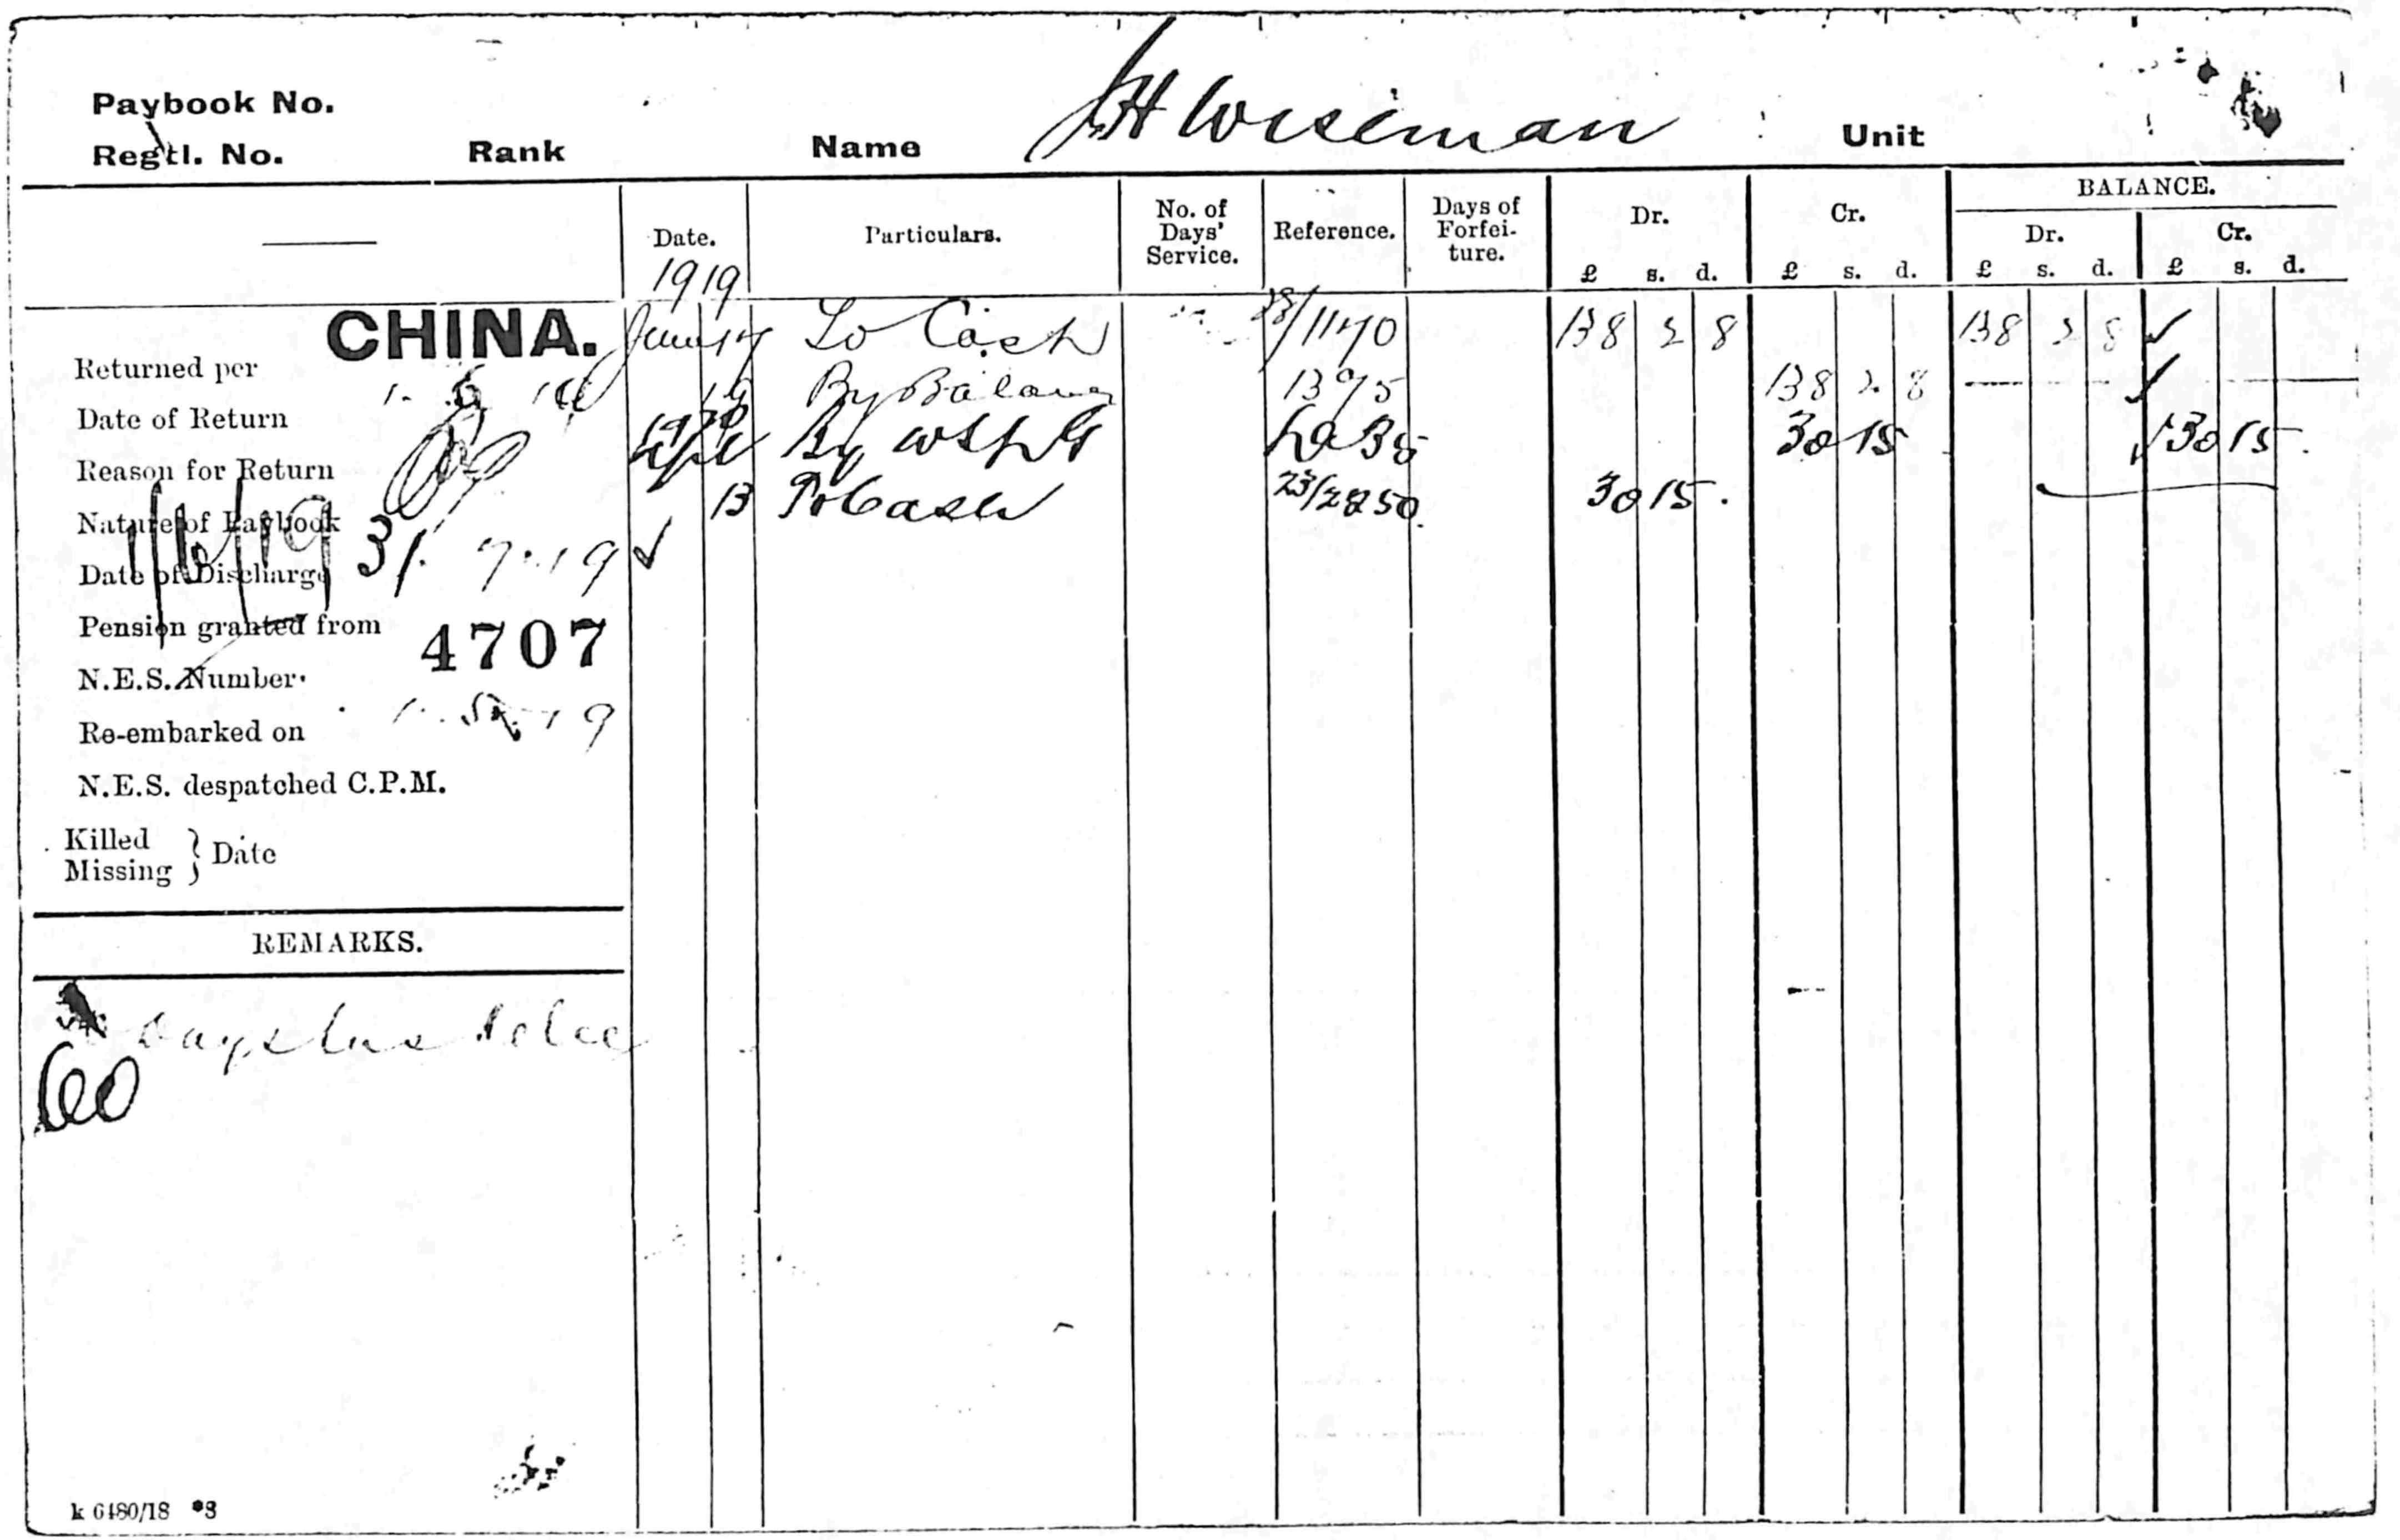 Paybook No.
Regtl. No. Rank Name H Wiseman Unit
Date. Particulars. No. of Days' Service. Reference. Days of Forfei-ture. Dr. £ s. d. Cr. £ s. d. BALANCE. Dr. £ s. d. Cr. £ s. d.
1919
To Cash 28/11470 138 2 8 138 2 8
By Balance 1395 138 2 8
By 30 15 30 15
13 To Cash 23/2850 30 15
Returned per CHINA.
Date of Return
Reason for Return
Nature of Paybook
Date of Discharge 31. 7. 19
Pension granted from
N.E.S. Number 4707
Re-embarked on
N.E.S. despatched C.P.M.
Killed
Missing } Date
REMARKS.
60
k 6480/18 *3